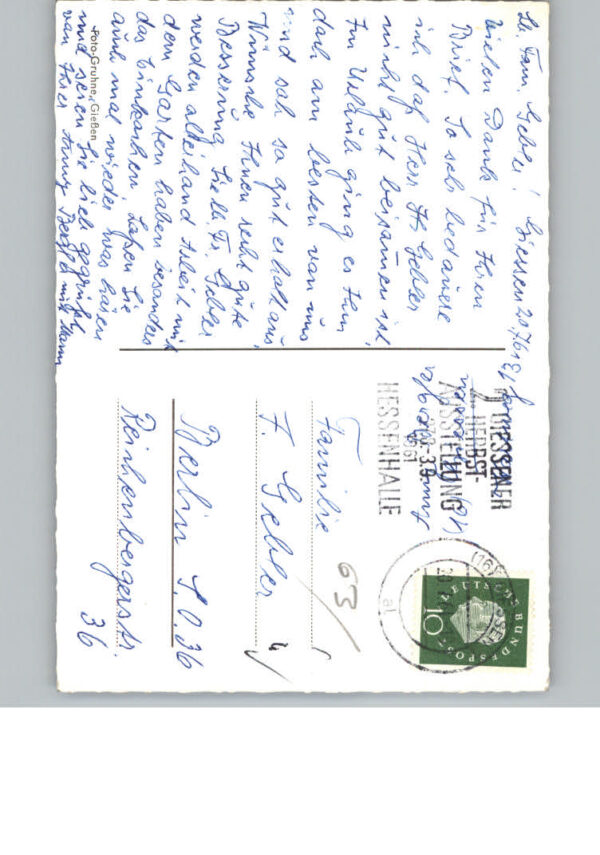 Lb. Fam. Gebler! Giessen 20.7.61
Vielen Dank für Ihren
Brief. So sehr bedauere
ich daß Herr H. Gebler
nicht gut beisammen ist,
Im Urlaub ging es Ihm
doch am besten von uns
und sah so gut erholt aus
Wünsche Ihnen recht gute
Besserung. Liebe Fr. Gebler
werden allerhand Arbeit mit
dem Garten haben besonders
das Einkochen. Lassen Sie
auch mal wieder was hören
und seien Sie lieb gegrüßt
von Ihrer Anny mit Mann
Foto-Gruhne, Gießen
GIESSENER
HERBST-
AUSSTELLUNG
1961
HESSENHALLE
(16) GIESSEN
al
DEUTSCHE BUNDESPOST
10
Familie
F. Gebler
Berlin S.O. 36
Reichenbergerstr.
36
63